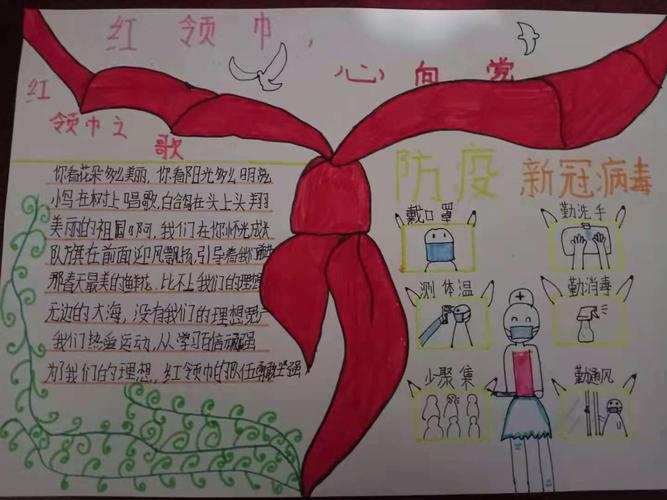 红领巾,
心向党
红
领巾之
歌
你看花朵多么美丽,你看阳光多么明亮
小鸟在树上唱歌,白鸽在头上翱翔
美丽的祖国啊,我们在你怀光成
队旗在前面迎风飘扬,引导着我们
那春天最美的鲜花,比不上我们的理想
无边的大海,没有我们的理想宽广
我们热爱运动,从学习百倍顽强
为了我们的理想,红领巾的队伍坚强
防疫
新冠病毒
戴口罩
勤洗手
测体温
勤消毒
少聚集
勤通风